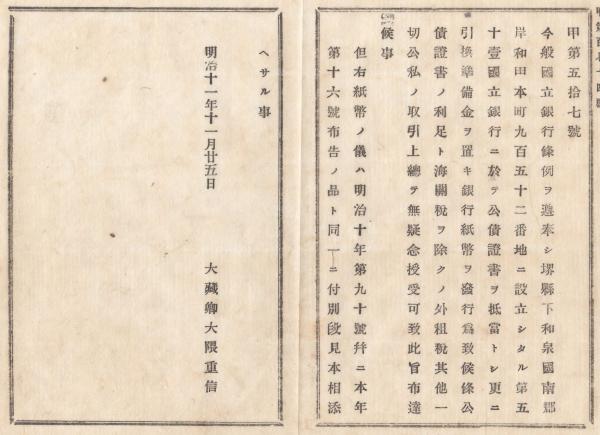 甲第五拾七號
今般國立銀行條例ヲ遵奉シ堺縣下和泉國南郡
岸和田本町九百五十二番地ニ設立シタル第五
十壹國立銀行ニ於テ公債證書ヲ抵當トシ更ニ
引換準備金ヲ置キ銀行紙幣ヲ發行爲致候條公
債證書ノ利足ト海關税ヲ除クノ外租税其他一
切公私ノ取引上總テ無疑念授受可致此旨布達
候事
但右紙幣ノ儀ハ明治十年第九十號幷ニ本年
第十六號布告ノ品ト同一ニ付別段見本相添
ヘサル事
明治十一年十一月廿五日
大藏卿大隈重信